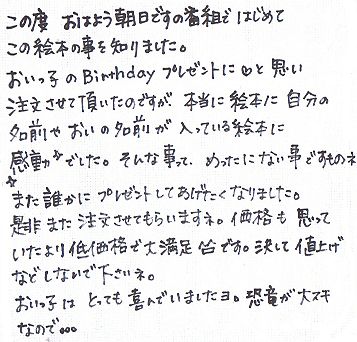 この度 おはよう朝日ですの番組で はじめて
この絵本の事を知りました。
おいっ子の Birthday プレゼントに♡と思い
注文させて頂いたのですが 本当に絵本に 自分の
名前や おいの名前が 入っている絵本に
感動でした。そんな事って、めったにない事ですものネ
また誰かに プレゼントしてあげたくなりました。
是非 また 注文させてもらいますネ。価格も 思って
いたより低価格で大満足 です。決して 値上げ
などしないで 下さいネ。
おいっ子は とっても 喜んでいましたヨ。恐竜が大スキ
なので…